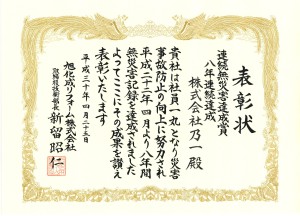 表彰状
連続無災害達成賞
八年連続達成
株式会社乃一殿
貴社は社員一丸となり災害
事故防止の向上に努力され
平成二十二年四月より八年間
無災害記録を達成されました
よってここにその成果を讃え
表彰いたします
平成三十年四月二十五日
旭化成リフォーム株式会社
新留昭仁